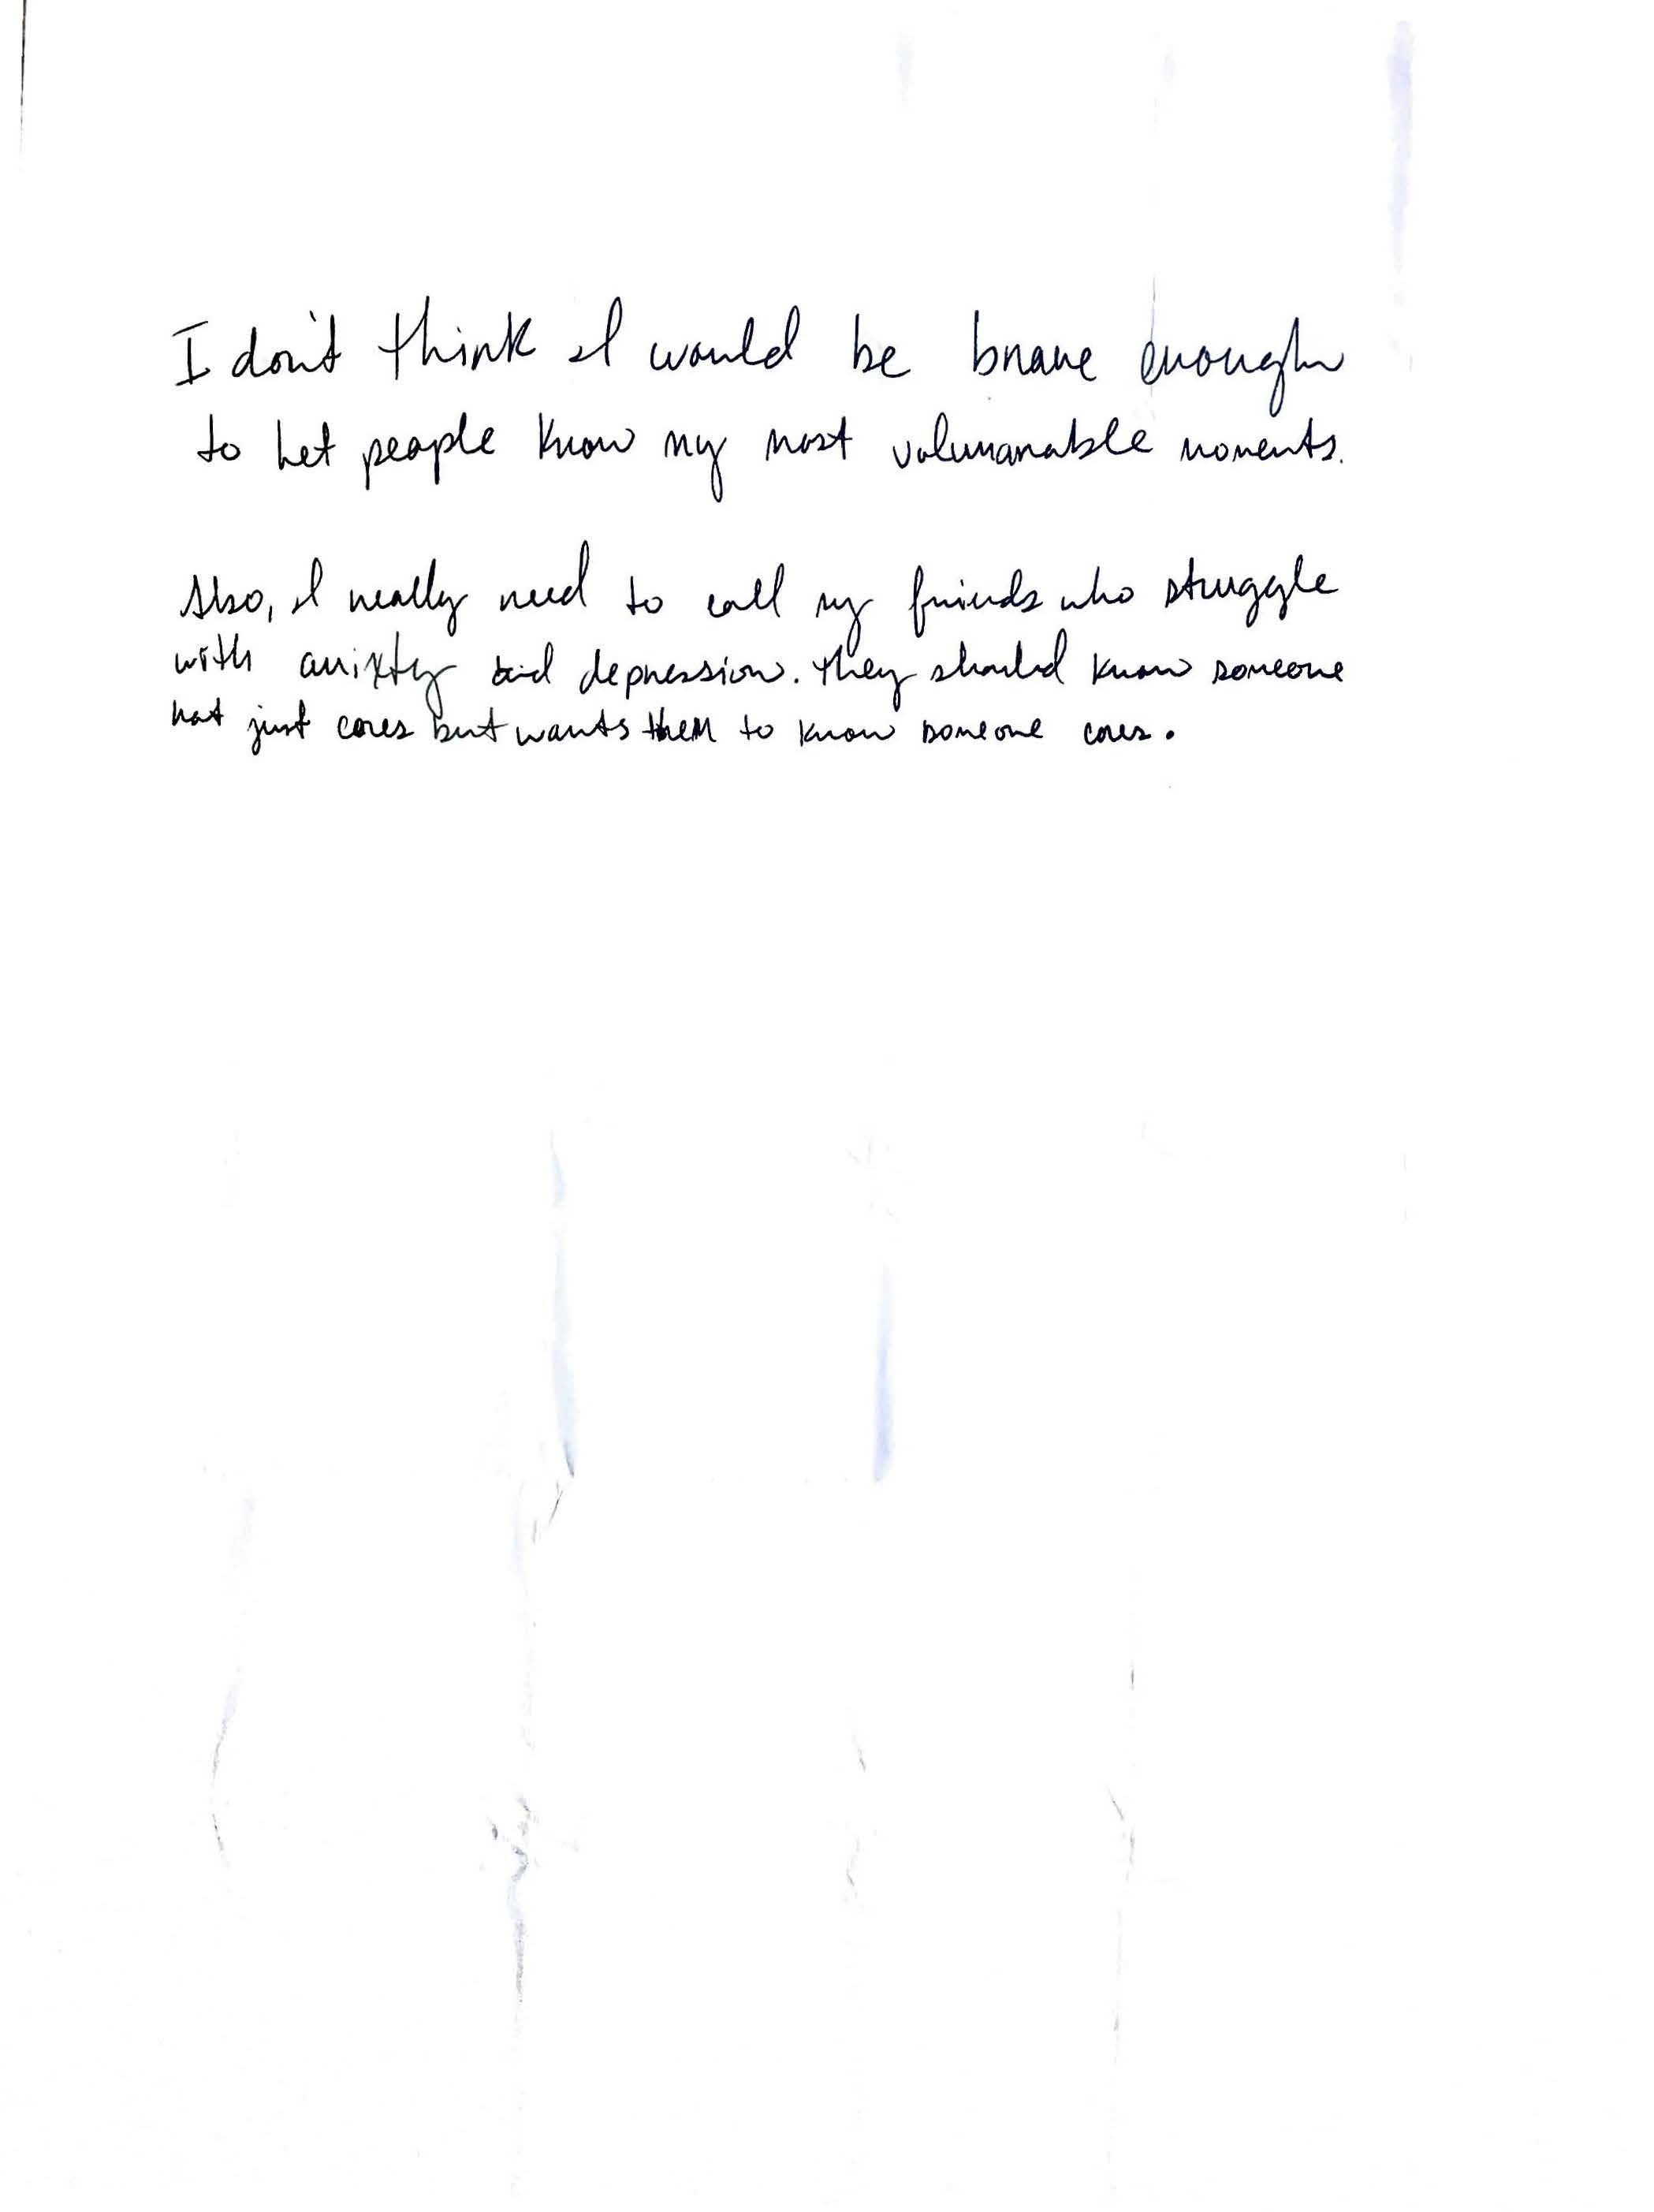 I don't think I would be brave enough
to let people know my most volumanable moments.
Also, I really need to call my friends who struggle
with anixty and depression. They should know someone
not just cares but wants them to know someone cares.